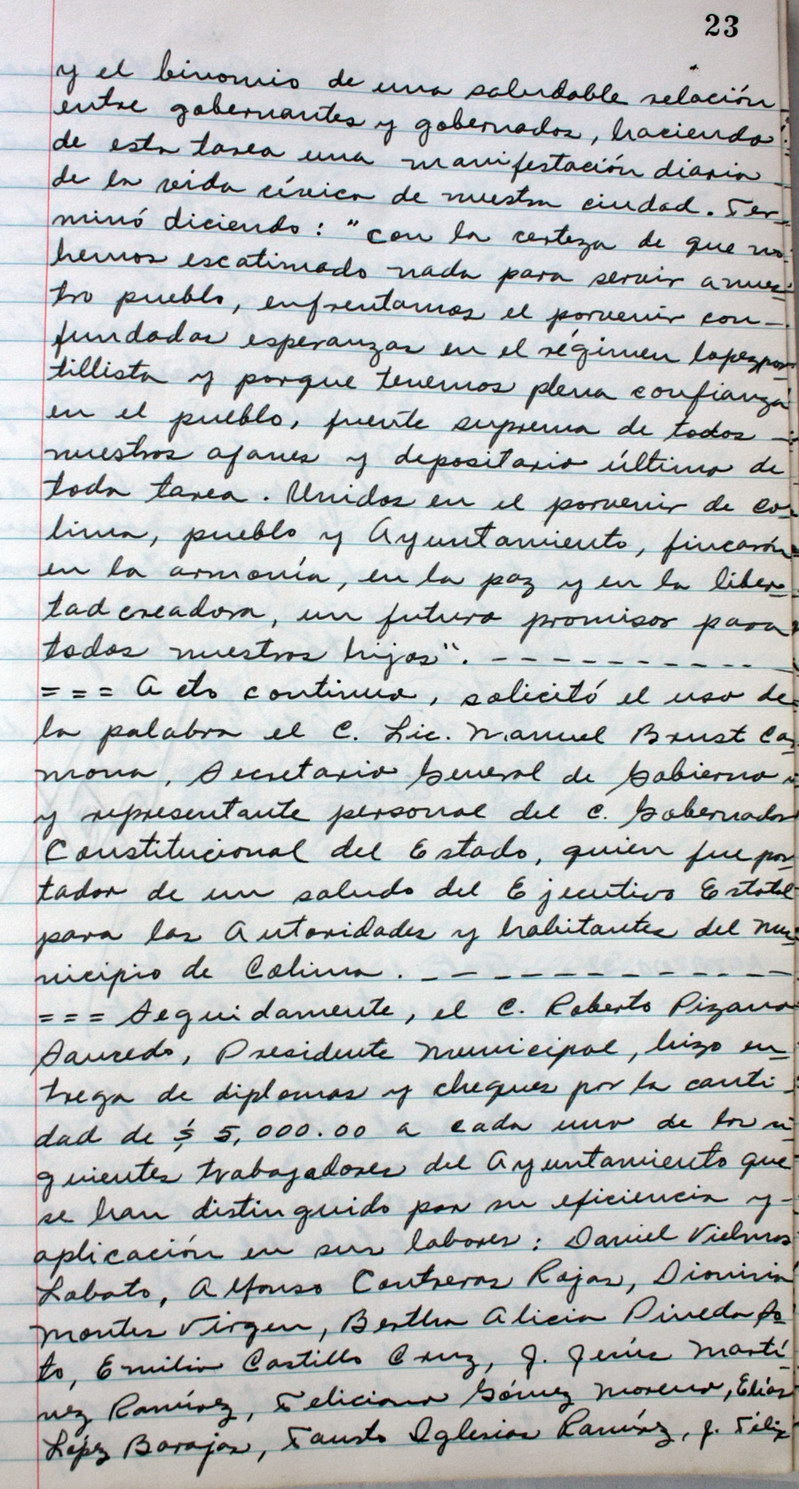 23
y el binomio de una saludable relación
entre gobernantes y gobernados, haciendo
de esta tarea una manifestación diaria
de la vida cívica de nuestra ciudad. Ter-
minó diciendo: "con la certeza de que no
hemos escatimado nada para servir a nues-
tro pueblo, enfrentamos el porvenir con-
fundadas esperanzas en el régimen lopezpor
tillista y porque tenemos plena confianza
en el pueblo, fuente suprema de todos -
nuestros afanes y depositario último de
toda tarea. Unidos en el porvenir de Co-
lima, pueblo y Ayuntamiento, fincarán
en la armonía, en la paz y en la liber-
tad creadora, un futuro promisor para
todos nuestros hijos". - - - - - - - - - -
= = = Acto continuo, solicitó el uso de
la palabra el C. Lic. Manuel Brust Car
mona, Secretario General de Gobierno
y representante personal del C. Gobernador
Constitucional del Estado, quien fue por
tador de un saludo del Ejecutivo Estatal
para las Autoridades y habitantes del Mu-
nicipio de Colima. - - - - - - - - - - -
= = = Seguidamente, el C. Roberto Pizano
Saucedo, Presidente Municipal, hizo en-
trega de diplomas y cheques por la canti-
dad de $ 5,000.00 a cada uno de los si
guientes trabajadores del Ayuntamiento que
se han distinguido por su eficiencia y-
aplicación en sus labores: Daniel Vielmas
Lobato, Alfonso Contreras Rojas, Dionisia
Montes Virgen, Bertha Alicia Pineda
to, Emilia Castillo Cruz, J. Jesús Martí-
nez Ramírez, Feliciano Gómez Moreno, Elías
López Barajas, Fausto Iglesias Ramírez, J. Félix